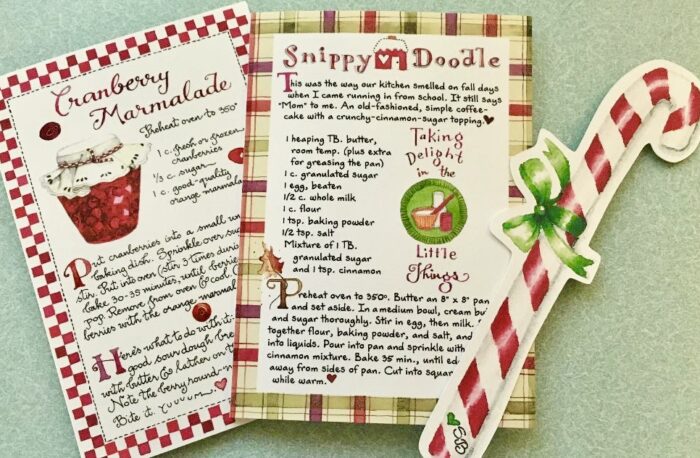 Cranberry
Marmalade
Preheat oven to 350°
1 c. fresh or frozen
cranberries
1/3 c. sugar
1 c. good-quality
orange marmala
Put cranberries into a small un
baking dish. Sprinkle over su
stir. Put into oven (stir 3 times duri
bake 30-35 minutes, until berrie
pop. Remove from oven & cool. C
berries with the orange marmal
Here's what to do with it:
good sour dough bre
with butter & lather on t
Note the berry round-n
Bite it. Yuuum
Snippy Doodle
This was the way our kitchen smelled on fall days
when I came running in from school. It still says
"Mom" to me. An old-fashioned, simple coffee-
cake with a crunchy-cinnamon-sugar topping.
1 heaping TB. butter,
room temp. (plus extra
for greasing the pan)
1 c. granulated sugar
1 egg, beaten
1/2 c. whole milk
1 c. flour
1 tsp. baking powder
1/2 tsp. salt
Mixture of 1 TB.
granulated sugar
and 1 tsp. cinnamon
Taking
Delight
in the
Little
Things
Preheat oven to 350°. Butter an 8" x 8" pan
and set aside. In a medium bowl, cream bu
and sugar thoroughly. Stir in egg, then milk.
together flour, baking powder, and salt, and
into liquids. Pour into pan and sprinkle with
cinnamon mixture. Bake 35 min., until ed
away from sides of pan. Cut into squar
while warm.
SB